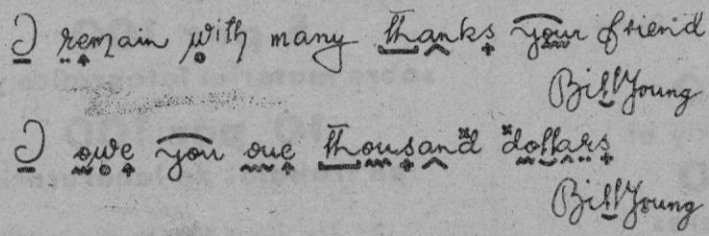 I remain with many thanks your friend
Bill Young
I owe you one thousand dollars
Bill Young